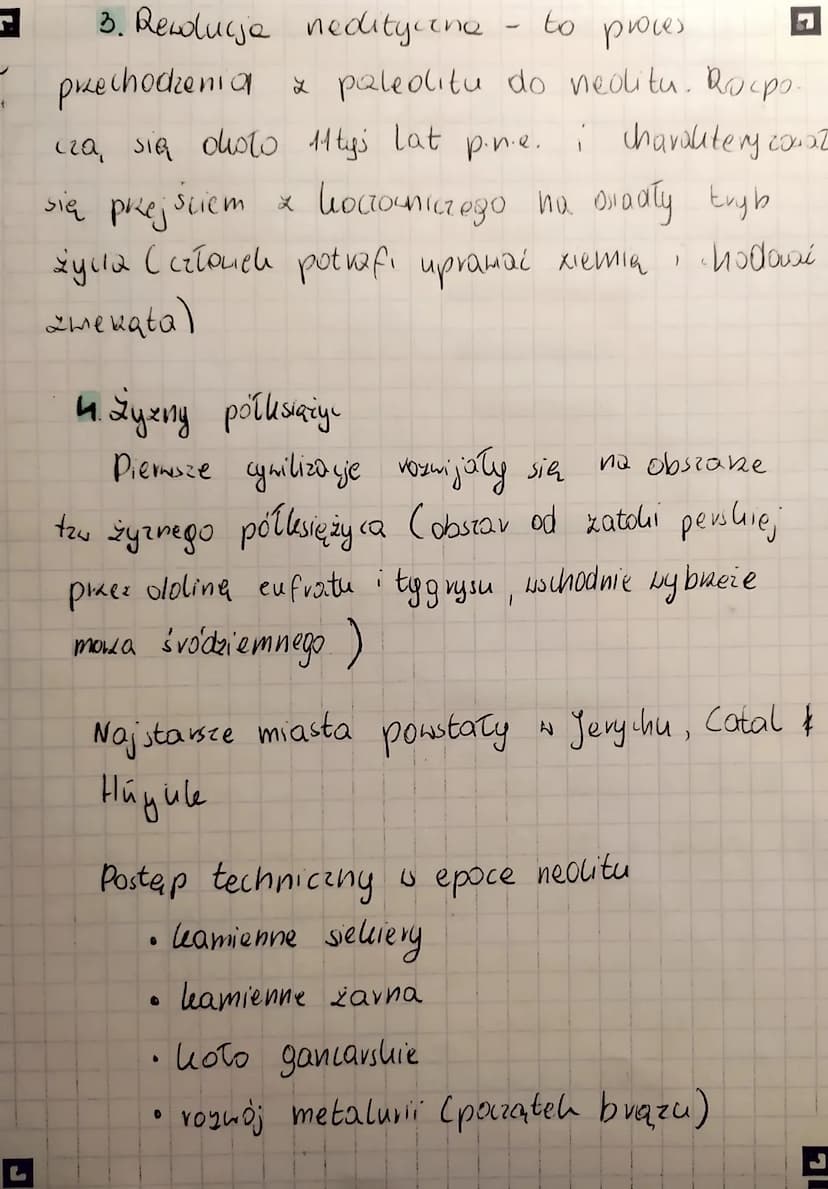 3. Rewolucja neolityczna - to proces
przechodzenia z paleolitu do neolitu. Rozpo-
czą się około 11tyś lat p.n.e. i charakteryzował
się przejściem z koczowniczego na osiadły tryb
życia (człowiek potrafi uprawiać ziemię i hodować
zwierzęta)
4. Żyzny półksiężyc
Pierwsze cywilizacje rozwijały się na obszarze
tzw żyznego półksiężyca (obszar od zatoki perskiej
przez dolinę eufratu i tygrysu, wschodnie wybrzeże
morza śródziemnego)
Najstarsze miasta powstały w Jerychu, Catal
Hüyük
Postęp techniczny w epoce neolitu
• kamienne siekiery
• kamienne żarna
• koło garncarskie
• rozwój metalurii (początek brązu)